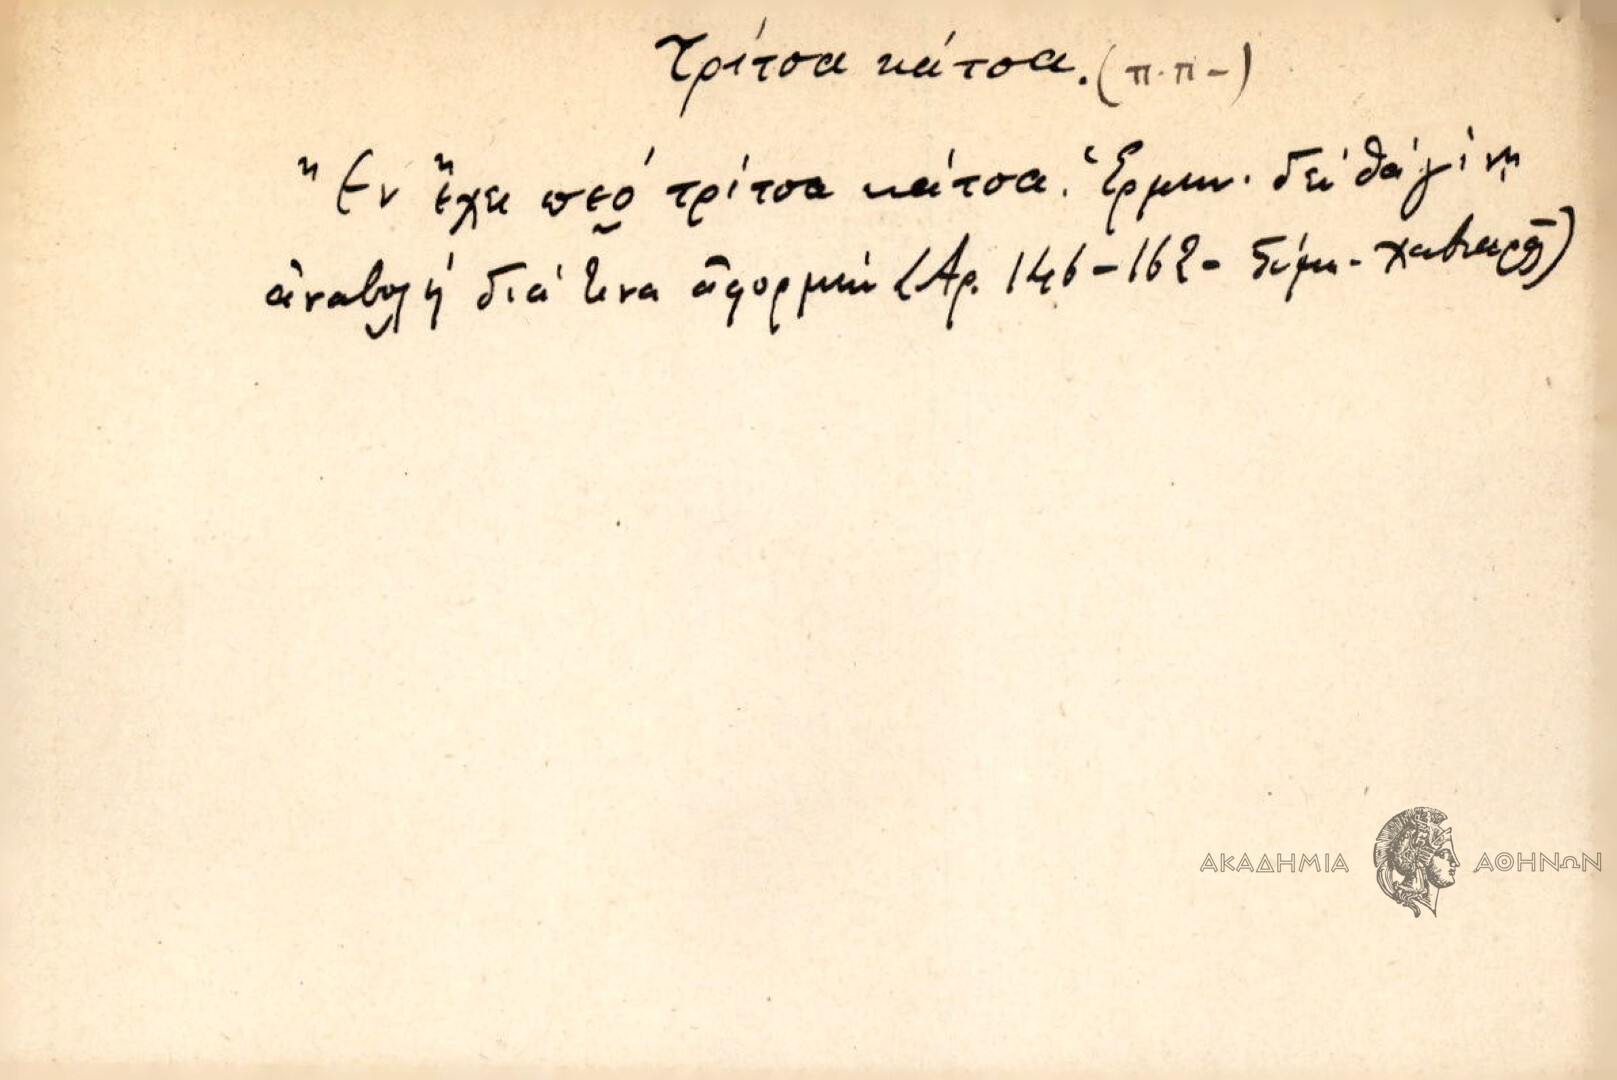 Τρίτσα κάτσα. (π.π-)
"Εν ἔχει πεό τρίτσα κάτσα. Ἑρμην. δέν θά γίνῃ
ἀναβολή διά ἀφορμήν (Αρ. 146-162- Σύμη- Χαβιαρᾶ)
ΑΚΑΔΗΜΙΑ ΑΘΗΝΩΝ